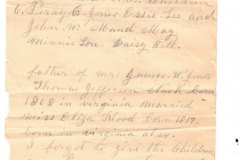 C. Perry C. Jones Essie Lee and
John W. Maud May
Minnie Lou. Daisy Bell.
father of mrs James W. Jones
Thomas Jefferson born
1808 in virginia married
miss Eliza Flood born 1817.
born in virginia also.
I forgot to give the children